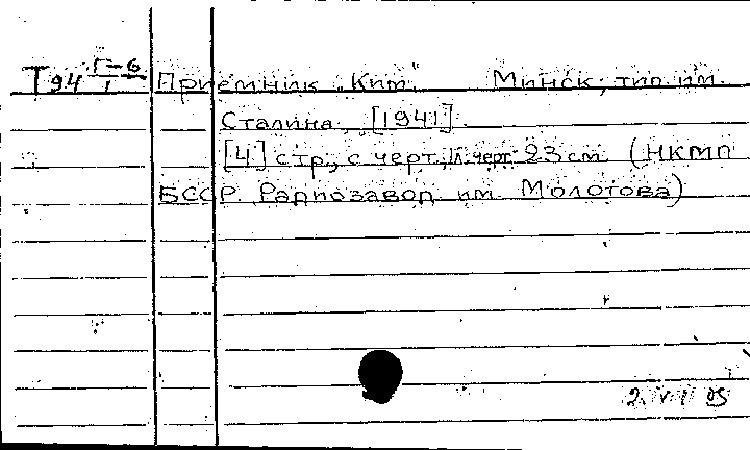 Т94 Г-6/1 Приемник „Ким" Минск, тип. им.
Сталина, [1941].
[4] стр., с черт., 1 л. черт. 23 см (НКМП
БССР. Радиозавод им. Молотова)